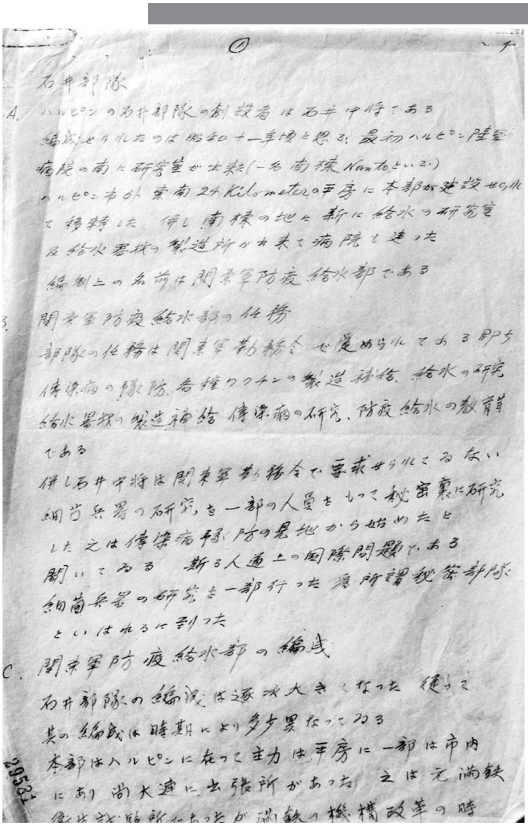 ①
石井部隊
A. ハルピンの石井部隊の創設者は石井中将である
編成せられたのは昭和十一年頃と思ふ 最初ハルピン陸軍
病院の南に研究室が出来(一名南棟 Nantoといふ)
ハルピン市外 東南24Kilometerの平房に本部が建設せられ
て移転した 併し南棟の地に新に給水の研究室
及給水器材の製造所が出来て病院も建った
編制上の名前は関東軍防疫給水部である
関東軍防疫給水部の任務
部隊の任務は関東軍勤務令で定められてある即ち
傳染病の予防、各種ワクチンの製造補給、給水の研究
給水器材の製造補給 傳染病の研究、防疫給水の教育
である
併し石井中将は関東軍勤務令で要求せられてゐない
細菌兵器の研究を一部の人員をもって秘密裏に研究
した 之は傳染病予防の見地から始めたと
聞いてゐる 斯る人道上の国際問題である
細菌兵器の研究を一部行った為所謂秘密部隊
といはれるに到った
C. 関東軍防疫給水部の編成
石井部隊の編成は逐次大きくなった 従って
其の編成は時期により多少異なってゐる
本部はハルピンに在って主力は平房に一部は市内
にあり 尚大連に出張所があった 之は元満鉄
衛生試験所であったが満鉄の機構改革の時
29531